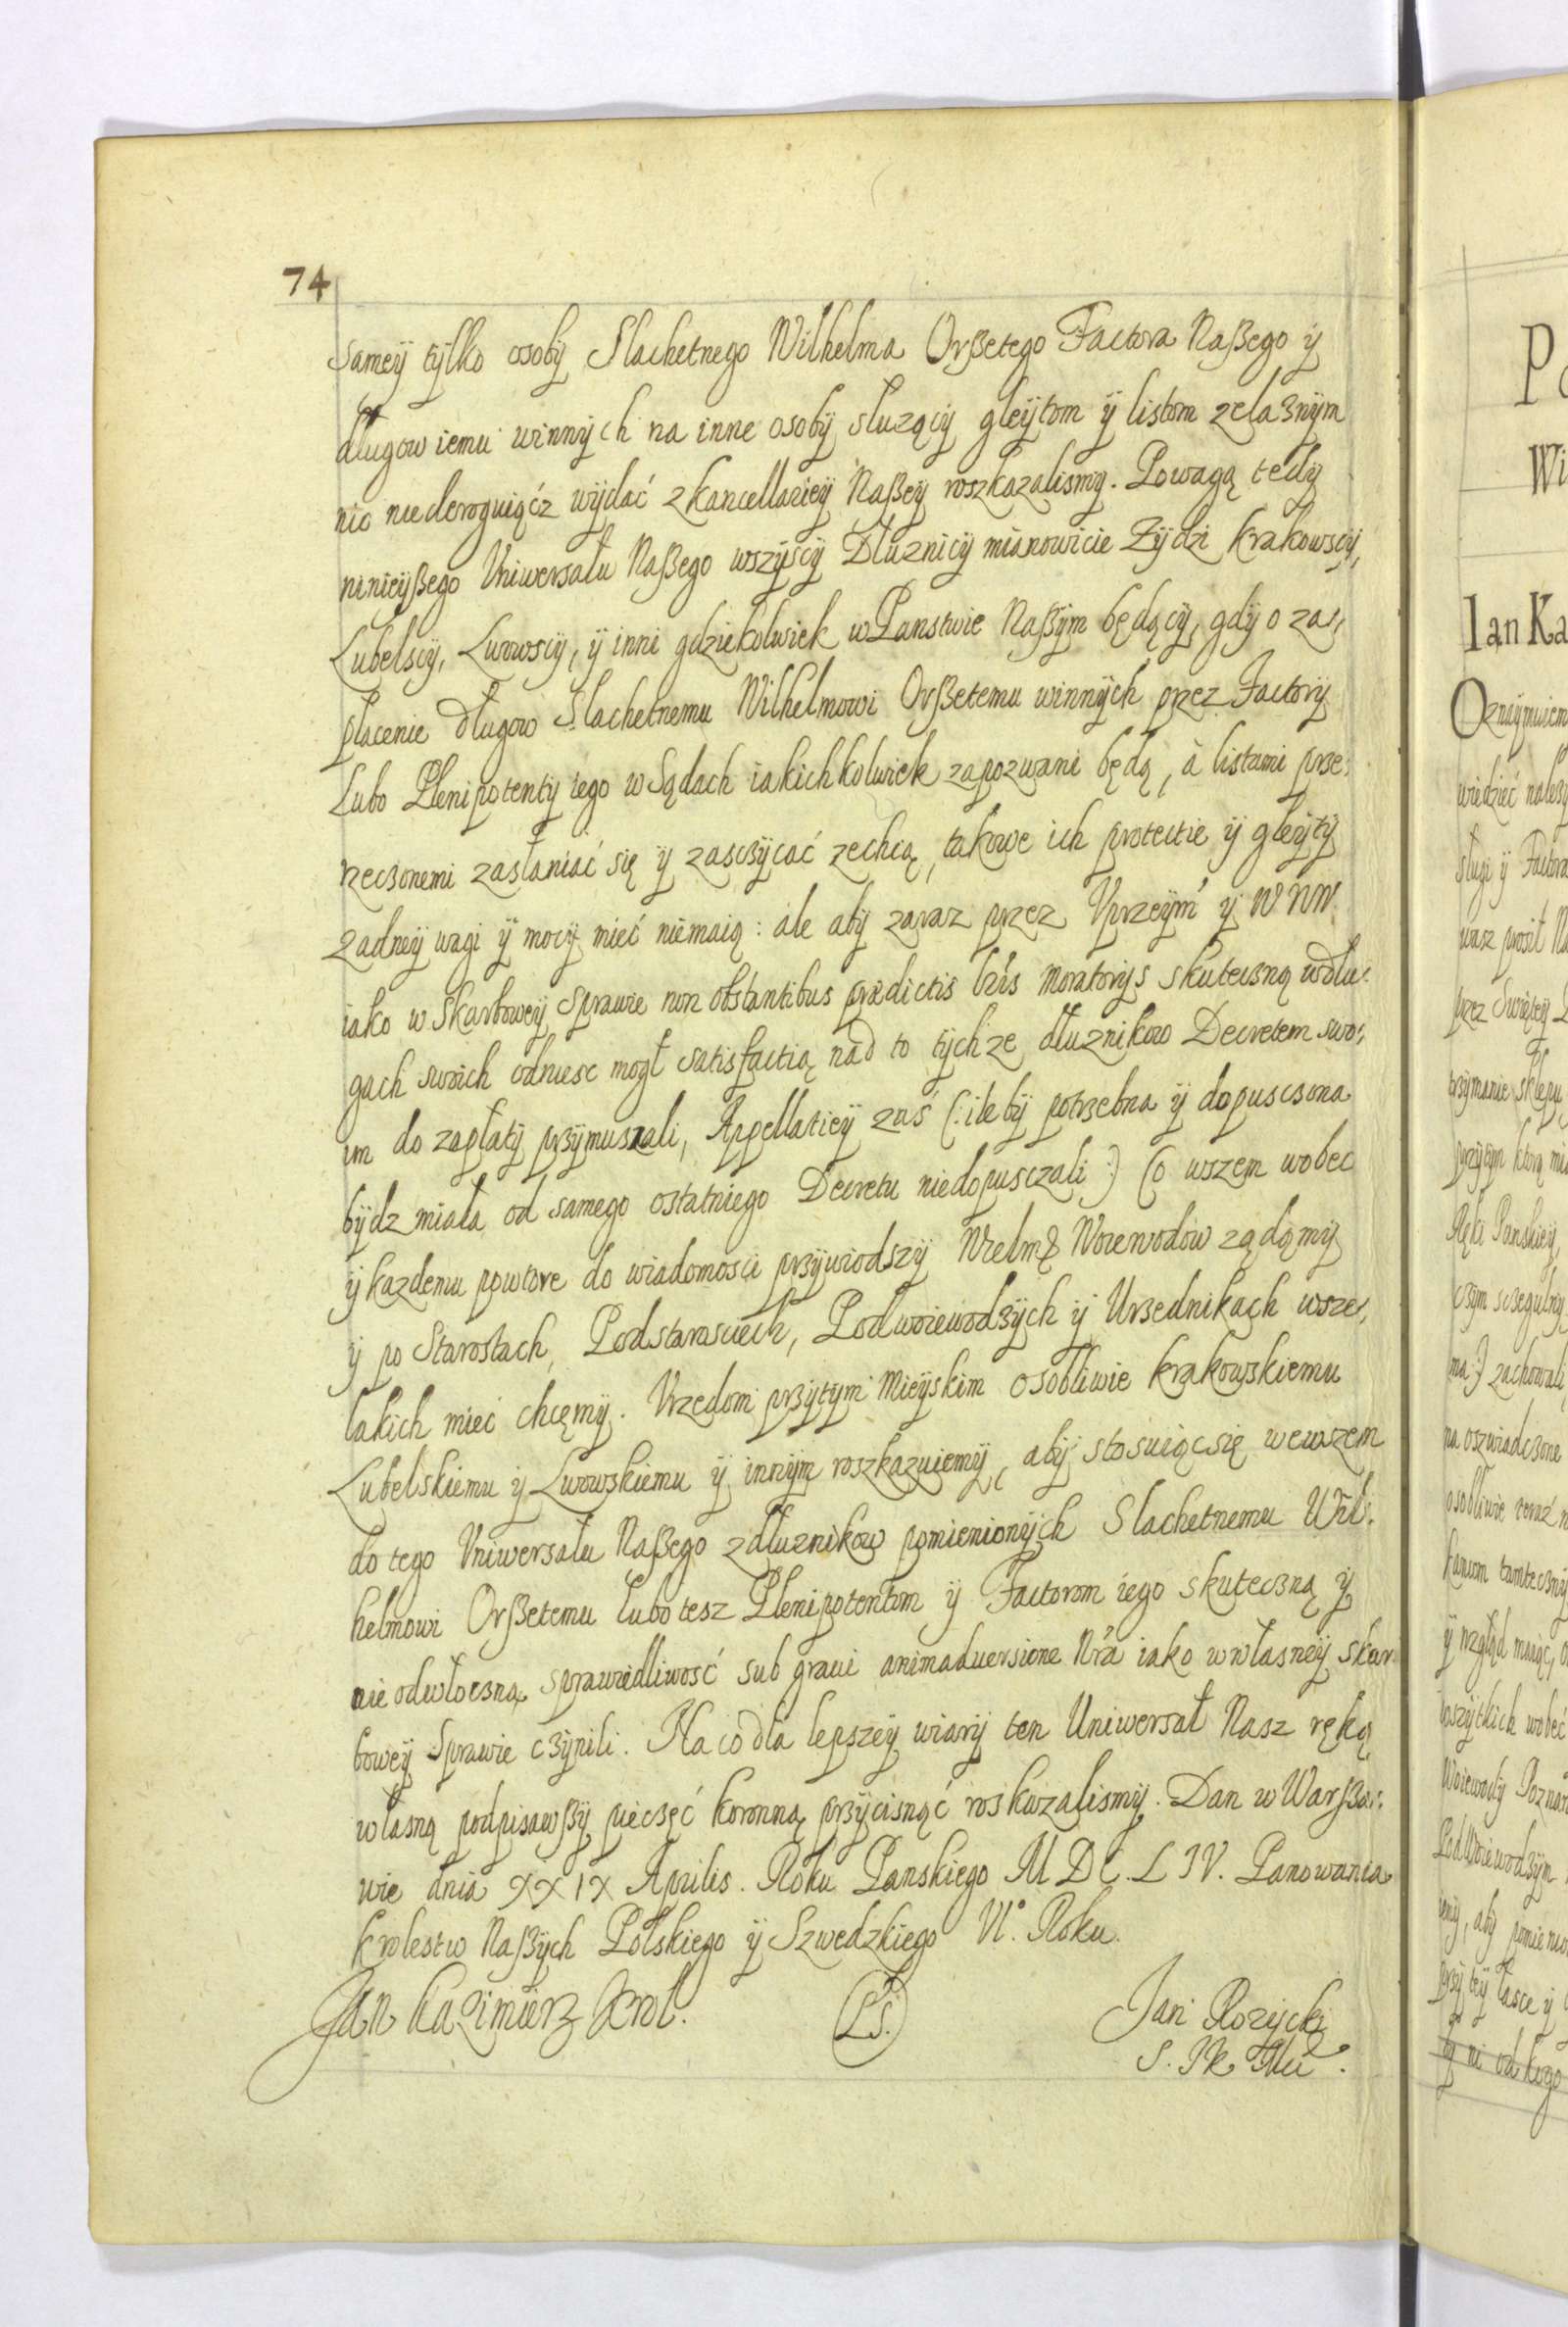 74
sameÿ tÿlko osobÿ Slachetnego Wilhelma Orßetego Factora Naßego ÿ
długow iemu winnÿch na inne osobÿ sluzącÿ gleÿtom ÿ listom zelaznÿm
nic nie deroguiącz wÿdać z kancellarieÿ Naßeÿ roszkazalismÿ. Powagą tedÿ
ninieÿßego Uniwersału Naßego wszÿscÿ Dłuznicÿ mianowicie Zÿdzi krakowscÿ,
Lubelscÿ, Lwowscÿ, ÿ inni gdziekolwiek w Panstwie Naßÿm będącÿ, gdÿ o zas,
płacenie długow Slachetnemu Wilhelmowi Orßetemu winnÿch przez Factorÿ
Lubo Plenipotentÿ iego w Sądach iakichkolwiek zapozwani będą, à listami prze:
rzeczonemi zasłaniać się ÿ zasczÿcać zechcą, takowe ich protectie ÿ gleÿtÿ
zadneÿ wagi ÿ mocÿ mieć niemaią: ale abÿ zaraz przez Uprzeÿm ÿ WNW
iako w Skarboweÿ Sprawie non obstantibus prædictis lris moratorÿs skuteczną w dłu:
gach swoich odniesc mogł satisfactią nad to tÿchze dłuznikow Decretem swo:
im do zapłatÿ przÿmuszali, Appellatieÿ zaś (: ile bÿ potrzebna ÿ dopusczona
bÿdz miała od samego ostatniego Decretu niedopusczali :) Co wszem wobec
ÿ kazdemu powtore do wiadomosci przÿwiodszÿ Wielmę Woiewodow ządąmÿ
ÿ po Starostach, Podstarosciech, Podwoiewodzÿch ÿ Urzednikach wsze,
lakich mieć chcęmÿ. Urzedom przÿtÿm Mieÿskim osobliwie krakowskiemu
Lubelskiemu ÿ Lwowskiemu ÿ innÿm roszkazuiemÿ, abÿ stosuiącsię wewszem
do tego Uniwersału Naßego z dłuznikow pomienionÿch Slachetnemu Wil:
helmowi Orßetemu lubo tesz Plenipotentom ÿ Factorom iego skuteczną ÿ
nieodwłoczną sprawiedliwość sub graui animaduersione Nra iako w własneÿ skar
boweÿ Sprawie czÿnili. Na co dla lepszeÿ wiarÿ ten Uniwersał Nasz ręką
własną podpisawßÿ pieczęć koronną przÿcisnąć roskazalismÿ. Dan w Warßa:
wie dnia XXIX Aprilis. Roku Panskiego MDC.LIV. Panowania
krolestw Naßÿch Polskiego ÿ Szwedzkiego VI°. Roku.
Jan Kazimierz Krol.
LS.
Jan Rozycki
Ian Ka
Oznaÿmuiem
wiedzieć należ
sługi ÿ Factora
wasz prosił Na
przez Swiętey
trzÿmanie sklepu
Ręki Panskieÿ
ma:) zachowali
na oszwiadczone
osobliwie teraz n
ÿ wzgląd maiąc, o
wszÿtkich wobec
Woiewodÿ Poznan
PodWoiewodzÿm
iemÿ, abÿ pomienio
przÿ teÿ łasce ÿ
ni od kogo